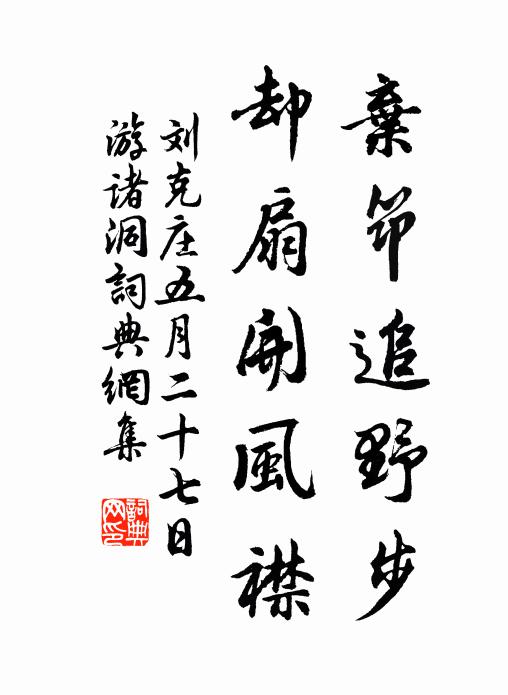 棄筇追野步
却扇開風襟
刘克庄五月二十七日
游诸洞詞典網集
詞典
网印